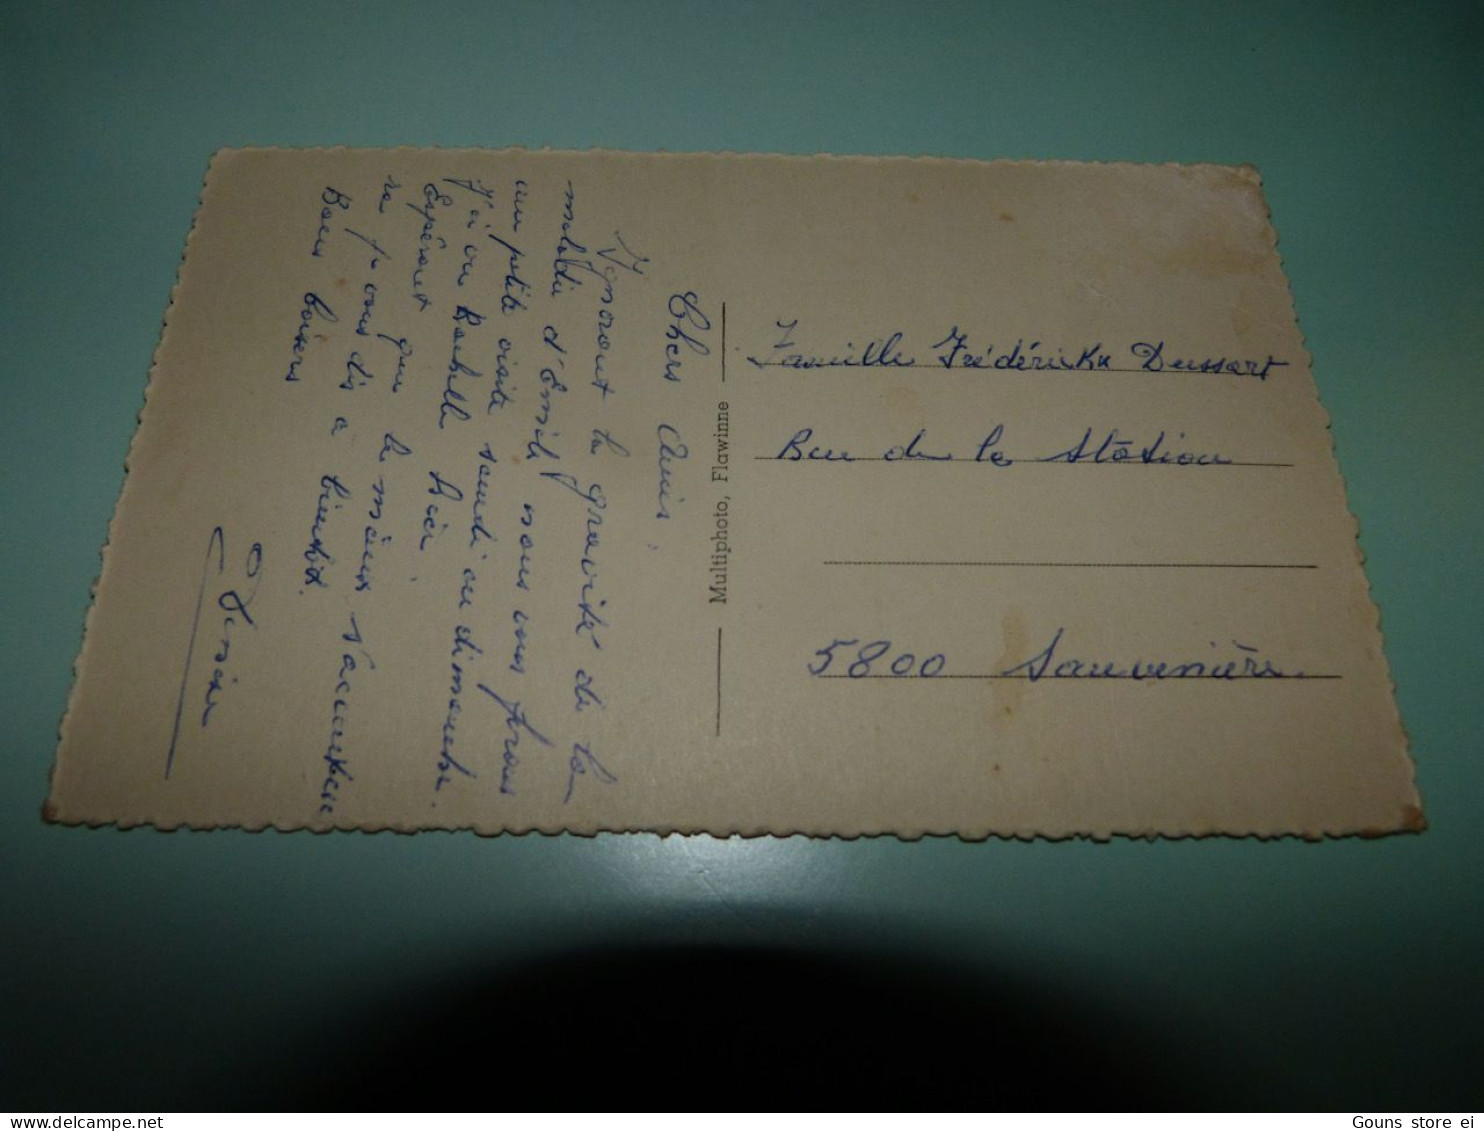 Chers Amis,
Ignorant la gravité de la
maladie d'Emile nous vous ferons
une petite visite samedi ou dimanche.
J'ai vu Rachelle hier.
Espérant que le mieux s'accentue
ra je vous dis à bientôt.
Bons baisers
Multiphoto, Flawinne
Famille Frédérickx Dussart
Rue de la Station
5800 Sauvenière
Gouns store ei